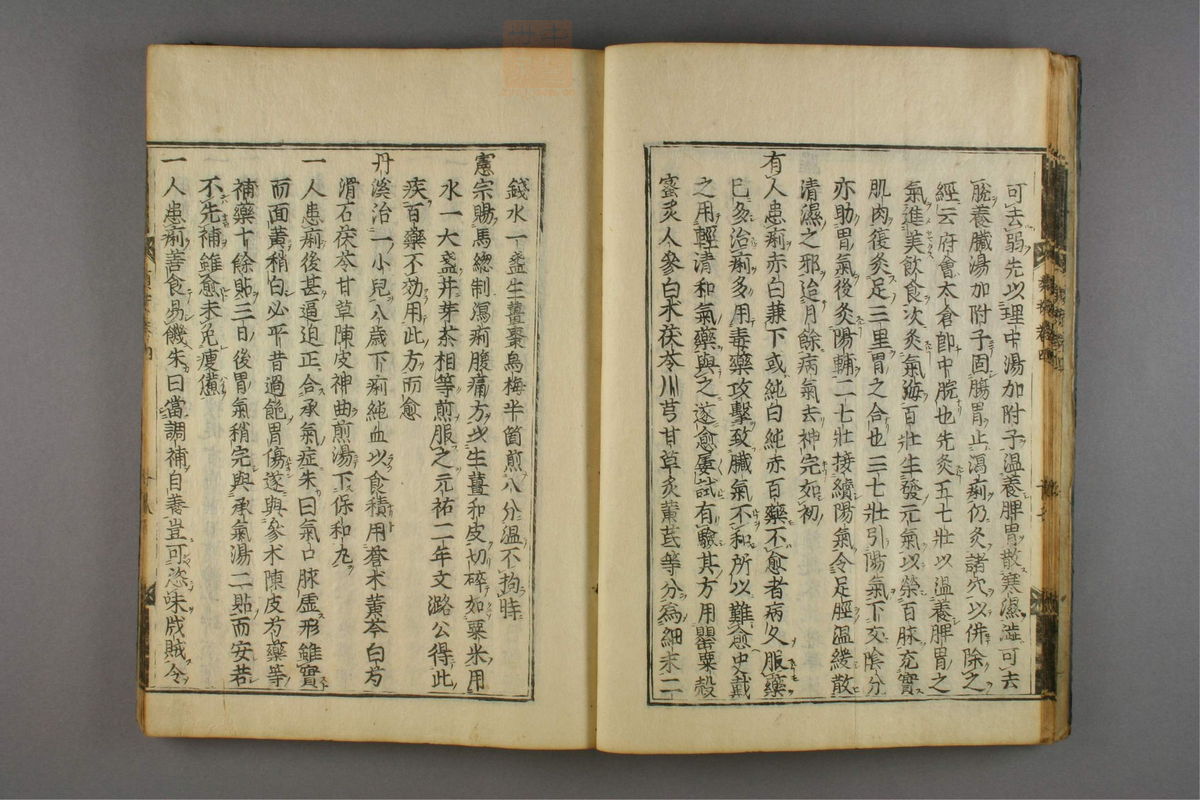 可去弱先以理中湯加附子溫養脾胃散寒濕澁可去
脫養臟湯加附子固膓胃止瀉痢仍灸諸穴以併除之
經云府會太倉即中脘也先灸五七壯以溫養脾胃之
氣進美飲食次灸氣海百壯生發元氣以榮百脉充實
肌肉復灸足三里胃之合也三七壯引陽氣下交陰分
亦助胃氣後灸陽輔二七壯接續陽氣令足脛溫緩散
清濕之邪迨月餘病氣去神完如初
有人患痢赤白兼下或純白純赤百藥不愈者病久服藥
已多治痢多用毒藥攻擊致臟氣不和所以難愈史戴
之用輕清和氣藥與之遂愈屡試有驗其方用罌粟殼
蜜炙人參白朮茯苓川芎甘草炙黃芪等分為細末二
錢水一盞生薑棗烏梅半箇煎八分溫不拘時
憲宗賜馬緫制瀉痢腹痛方以生薑和皮切碎如粟米用
水一大盞并芽茶相等煎服之元祐二年文潞公得此
疾百藥不効用此方而愈
丹溪治一小兒八歲下痢純血以食積用蒼朮黃芩白芍
滑石茯苓甘草陳皮神曲煎湯下保和丸
一人患痢後甚逼迫正合承氣症朱曰氣口脉虛形雖實
而面黃稍白必平昔過飽胃傷遂與參朮陳皮芍藥等
補藥十餘貼三日後胃氣稍完與承氣湯二貼而安若
不先補雖愈未免瘦憊
一人患痢善食易饑朱曰當調補自養豈可恣味戕賊令